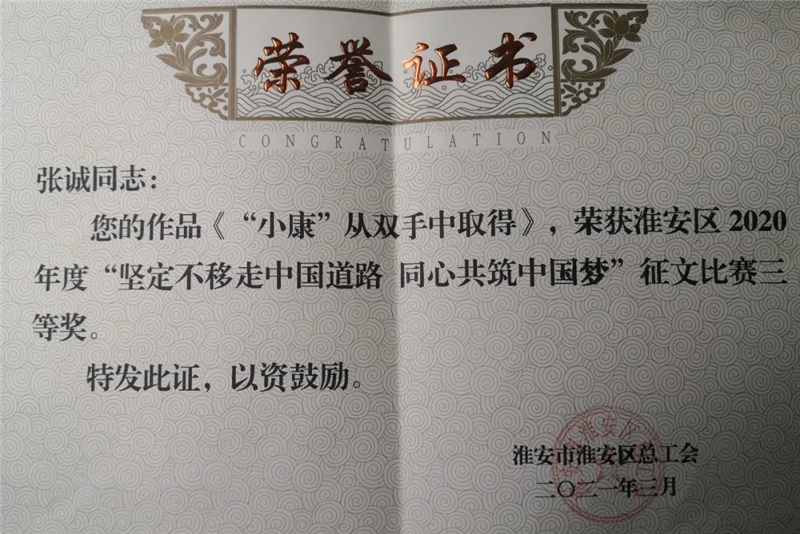 荣誉证书
CONGRATULATION
张诚同志：
您的作品《“小康”从双手中取得》，荣获淮安区2020
年度“坚定不移走中国道路 同心共筑中国梦”征文比赛三
等奖。
特发此证，以资鼓励。
淮安市淮安区总工会
二〇二一年三月